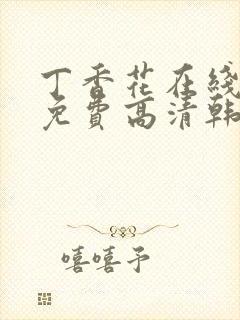 丁香花在线
免费高清韩
嘻嘻予